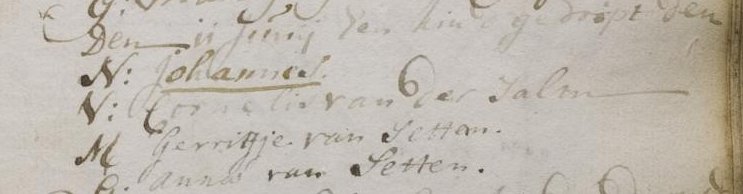 Den 11 Junij Een kind gedoopt den
N: Johannes.
V: Cornelis van der Salm
M Gerritje van Setten.
G: Anna van Setten.